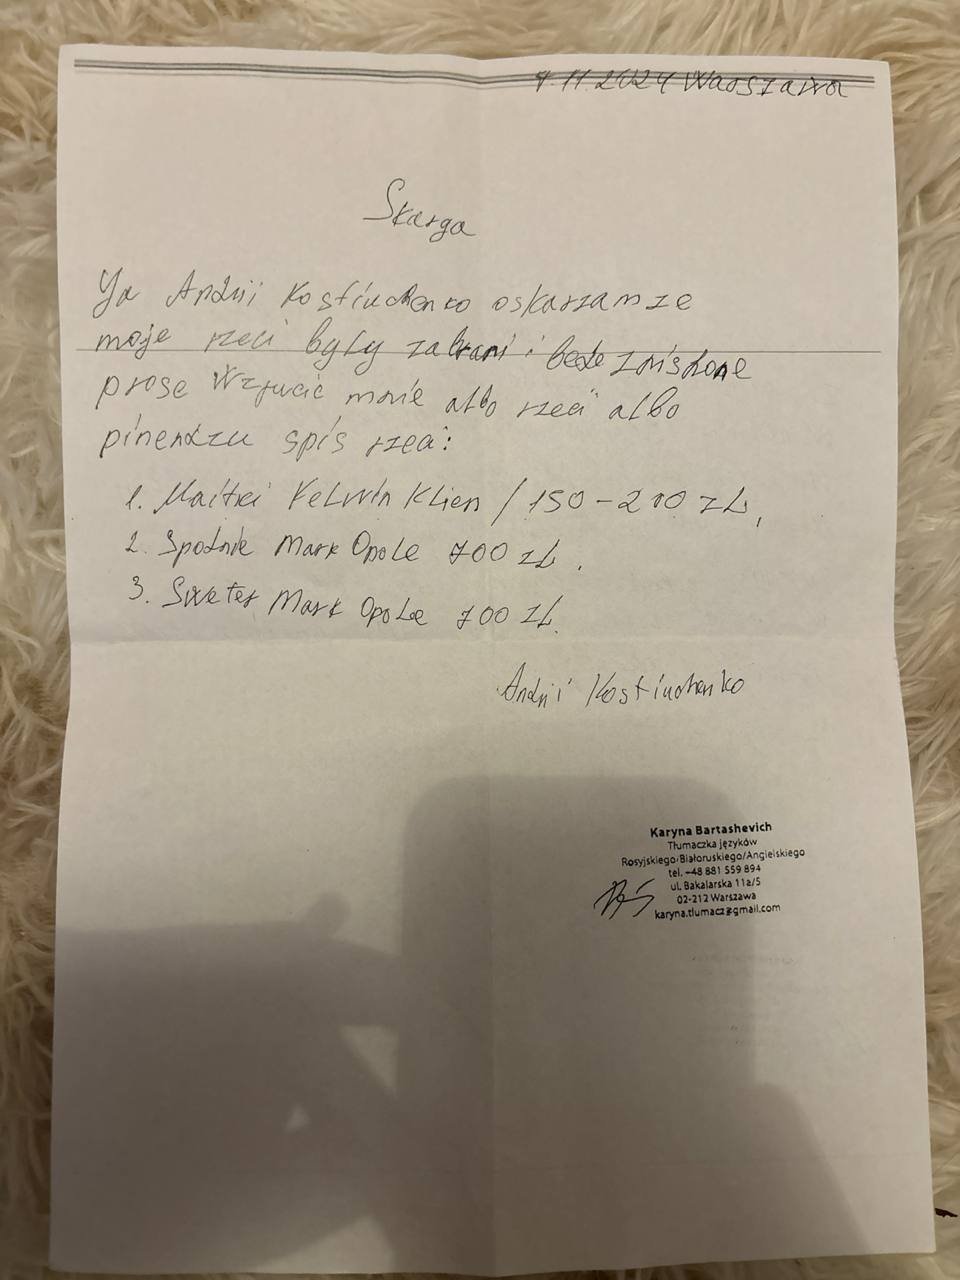 9.11.2024 Warszawa
Skarga
Ya Andrii Kostiuchenko oskarzam ze
moje rzeci byly zabrani i bede znisdone
prose wzrucić mnie albo rzeci albo
pinendzu spis rzeci:
1. Maitki Kelwin Klien / 150-200 zL,
2. Spodnie Mark Opole 700 zL.
3. Sweter Mark Opole 700 zL.
Andrii Kostiuchenko
Karyna Bartashevich
Tłumaczka języków
Rosyjskiego/Białoruskiego/Angielskiego
tel. +48 881 559 894
ul. Bakalarska 11a/5
02-212 Warszawa
karyna.tlumacz@gmail.com